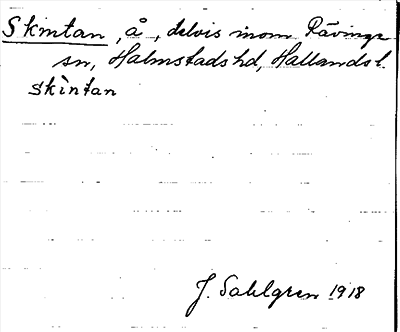 Skintan, å, delvis inom Rävinge
sn, Halmstads hd, Hallands l.
skìntan
J. Sahlgren 1918